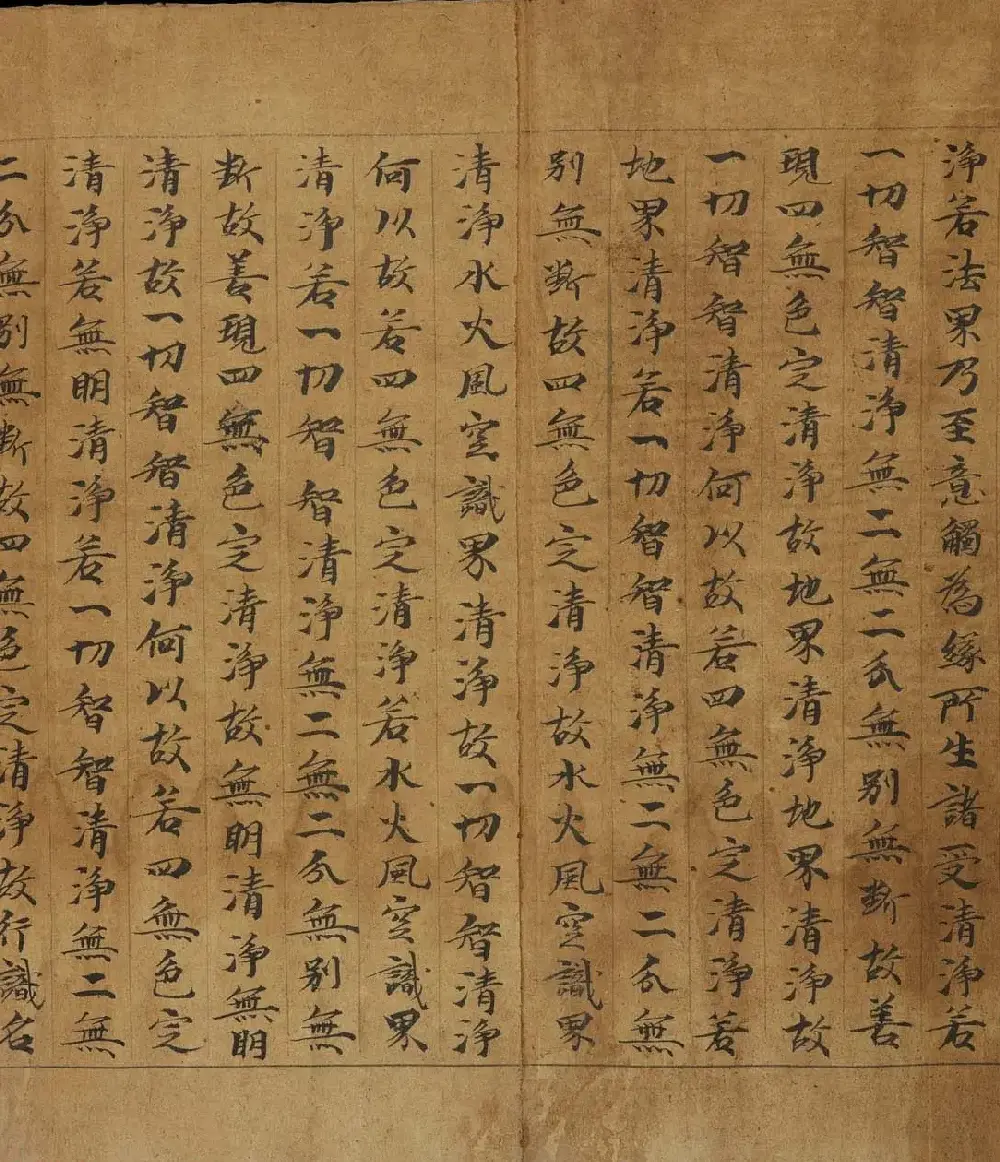 淨若法界乃至意觸為緣所生諸受清淨若
一切智智清淨無二無二分無別無斷故善
現四無色定清淨故地界清淨地界清淨故
一切智智清淨何以故若四無色定清淨若
地界清淨若一切智智清淨無二無二分無
別無斷故四無色定清淨故水火風空識界
清淨水火風空識界清淨故一切智智清淨
何以故若四無色定清淨若水火風空識界
清淨若一切智智清淨無二無二分無別無
斷故善現四無色定清淨故無明清淨無明
清淨故一切智智清淨何以故若四無色定
清淨若無明清淨若一切智智清淨無二無
二分無別無斷故四無色定清淨故行識名